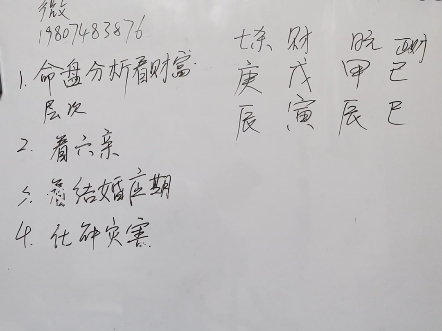 微
19807483876
1. 命盘分析看财富
层次
2. 看六亲
3. 看结婚应期
4. 化解灾害
七杀 财 日元 正财
庚 戊 甲 己
辰 寅 辰 巳